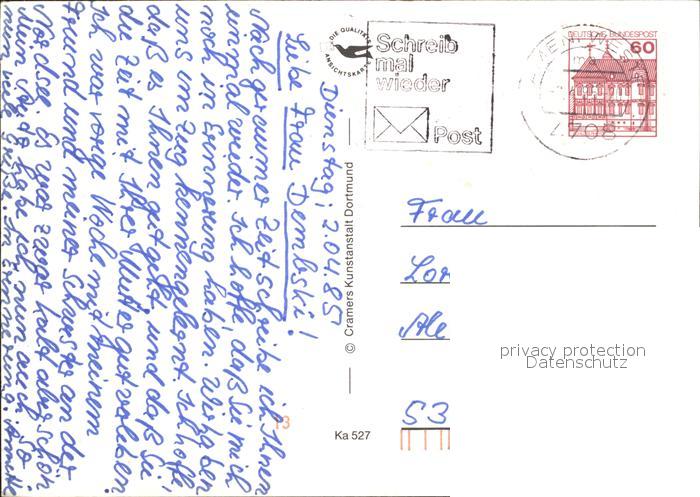 Dienstag, 2.04.85
Liebe Frau Dembski!
Nach geraumer Zeit schreibe ich Ihnen
wieder. Ich hoffe, daß Sie mich
noch in Erinnerung haben. Wir haben
uns im Zug kennengelernt. Ich hoffe
daß es Ihnen gut geht, und daß Sie
die Zeit mit Ihrer Mutter gut verleben.
Ich war vorige Woche mit meinem
Freund und meiner Schwester an der
Nordsee. Es war zwar kalt aber schön
DIE QUALITÄTS
ANSICHTSKARTE
Schreib
mal
wieder
Post
DEUTSCHE BUNDESPOST
60
4708
© Cramers Kunstanstalt Dortmund
Ka 527
13
Frau
Lor
Ale
53
privacy protection
Datenschutz